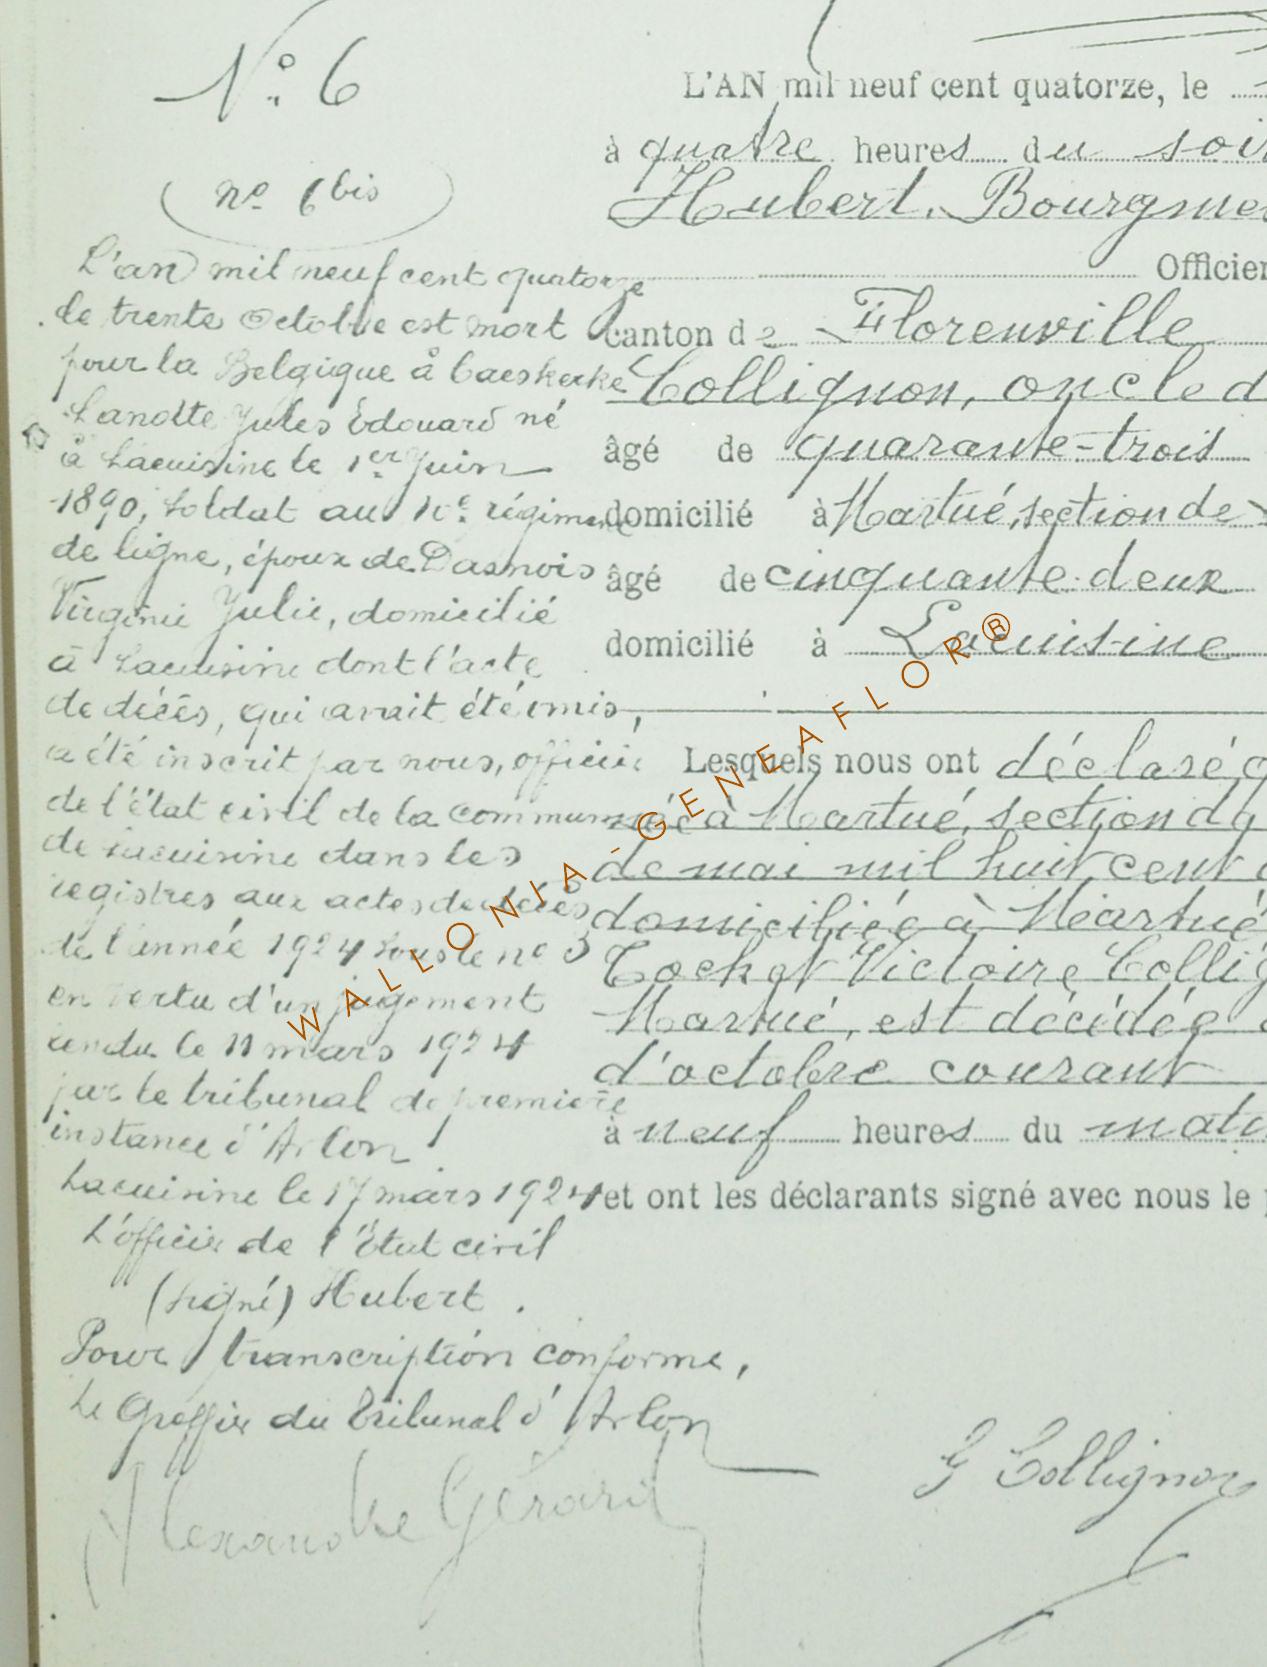 N° 6
n° 6 bis
L'an mil neuf cent quatorze
le trente Octobre est mort
pour la Belgique à Caeskerke
Lanotte Jules Edouard né
à Lacuisine le 1er Juin
1890, soldat au 10e régiment
de ligne, époux de Dasnois
Virginie Julie, domicilié
à Lacuisine dont l'acte
de décès, qui avait été omis,
a été inscrit par nous, officier
de l'état civil de la commune
de Lacuisine dans les
registres aux actes de décès
de l'année 1924 sous le n° 3
en vertu d'un jugement
rendu le 11 mars 1924
par le tribunal de première
instance d'Arlon
Lacuisine le 17 mars 1924
L'officier de l'Etat civil
(signé) Hubert.
Pour transcription conforme,
Le Greffier du Tribunal d'Arlon
Alexandre Gérard
L'AN mil neuf cent quatorze, le
à quatre heures du soir
Hubert, Bourgme
Officier
canton de Florenville
Collignon, oncle d
âgé de quarante-trois
domicilié à Martué, section de
âgé de cinquante-deux
domicilié à Lacuisine
Lesquels nous ont déclaré q
née à Martué, section d
de mai mil huit cent
domiciliée à Martué
Victoire Collig
Martué, est décédée
d'octobre courant
à neuf heures du mati
et ont les déclarants signé avec nous le
G Collignon
WALLONIA-GENEAFLOR®